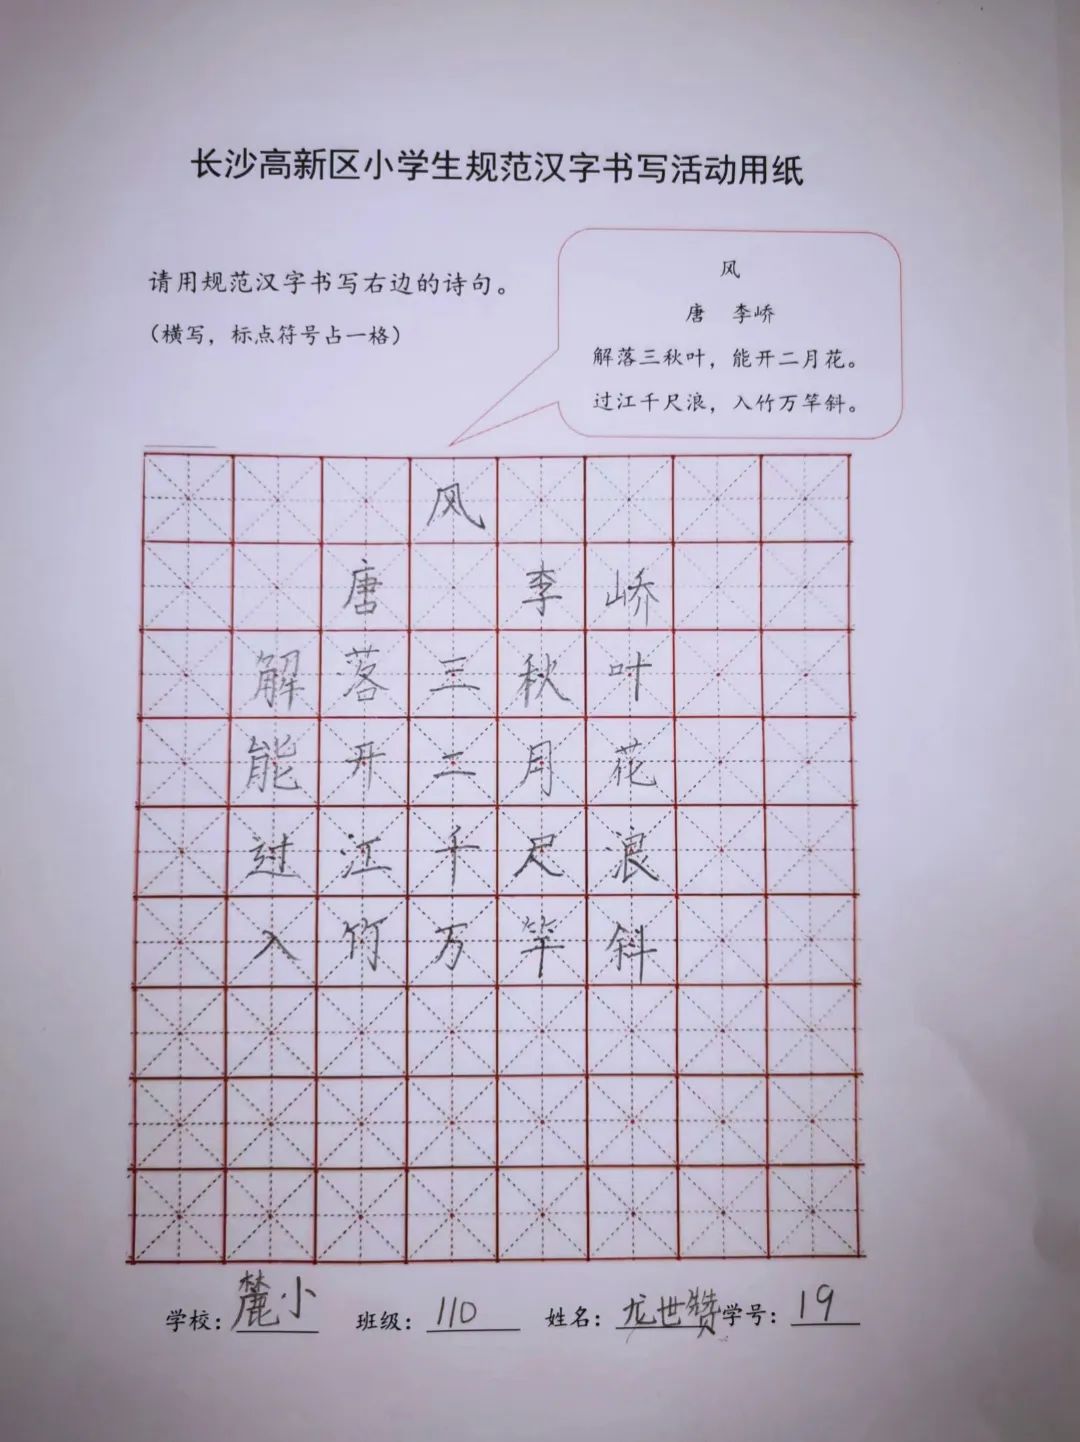 长沙高新区小学生规范汉字书写活动用纸
请用规范汉字书写右边的诗句。
(横写，标点符号占一格)
风
唐 李峤
解落三秋叶，能开二月花。
过江千尺浪，入竹万竿斜。
风
唐 李峤
解落三秋叶
能开二月花
过江千尺浪
入竹万竿斜
学校：麓小 班级：110 姓名：龙世赞 学号：19